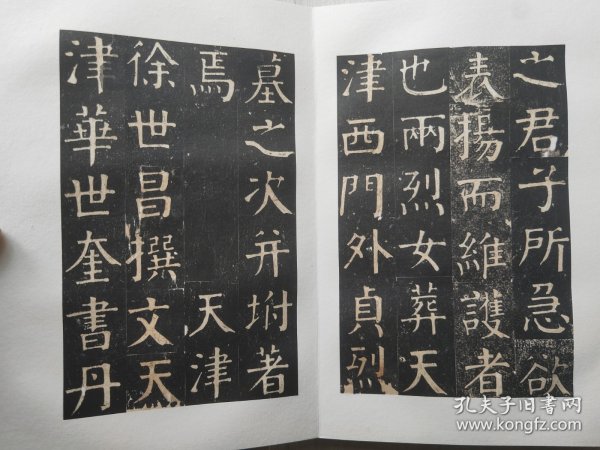 之君子所急欲
表揚而維護者
也兩烈女葬天
津西門外貞烈
墓之次并坿著
焉 天津
徐世昌撰文天
津華世奎書丹
孔夫子旧书网
www.kongfz.com